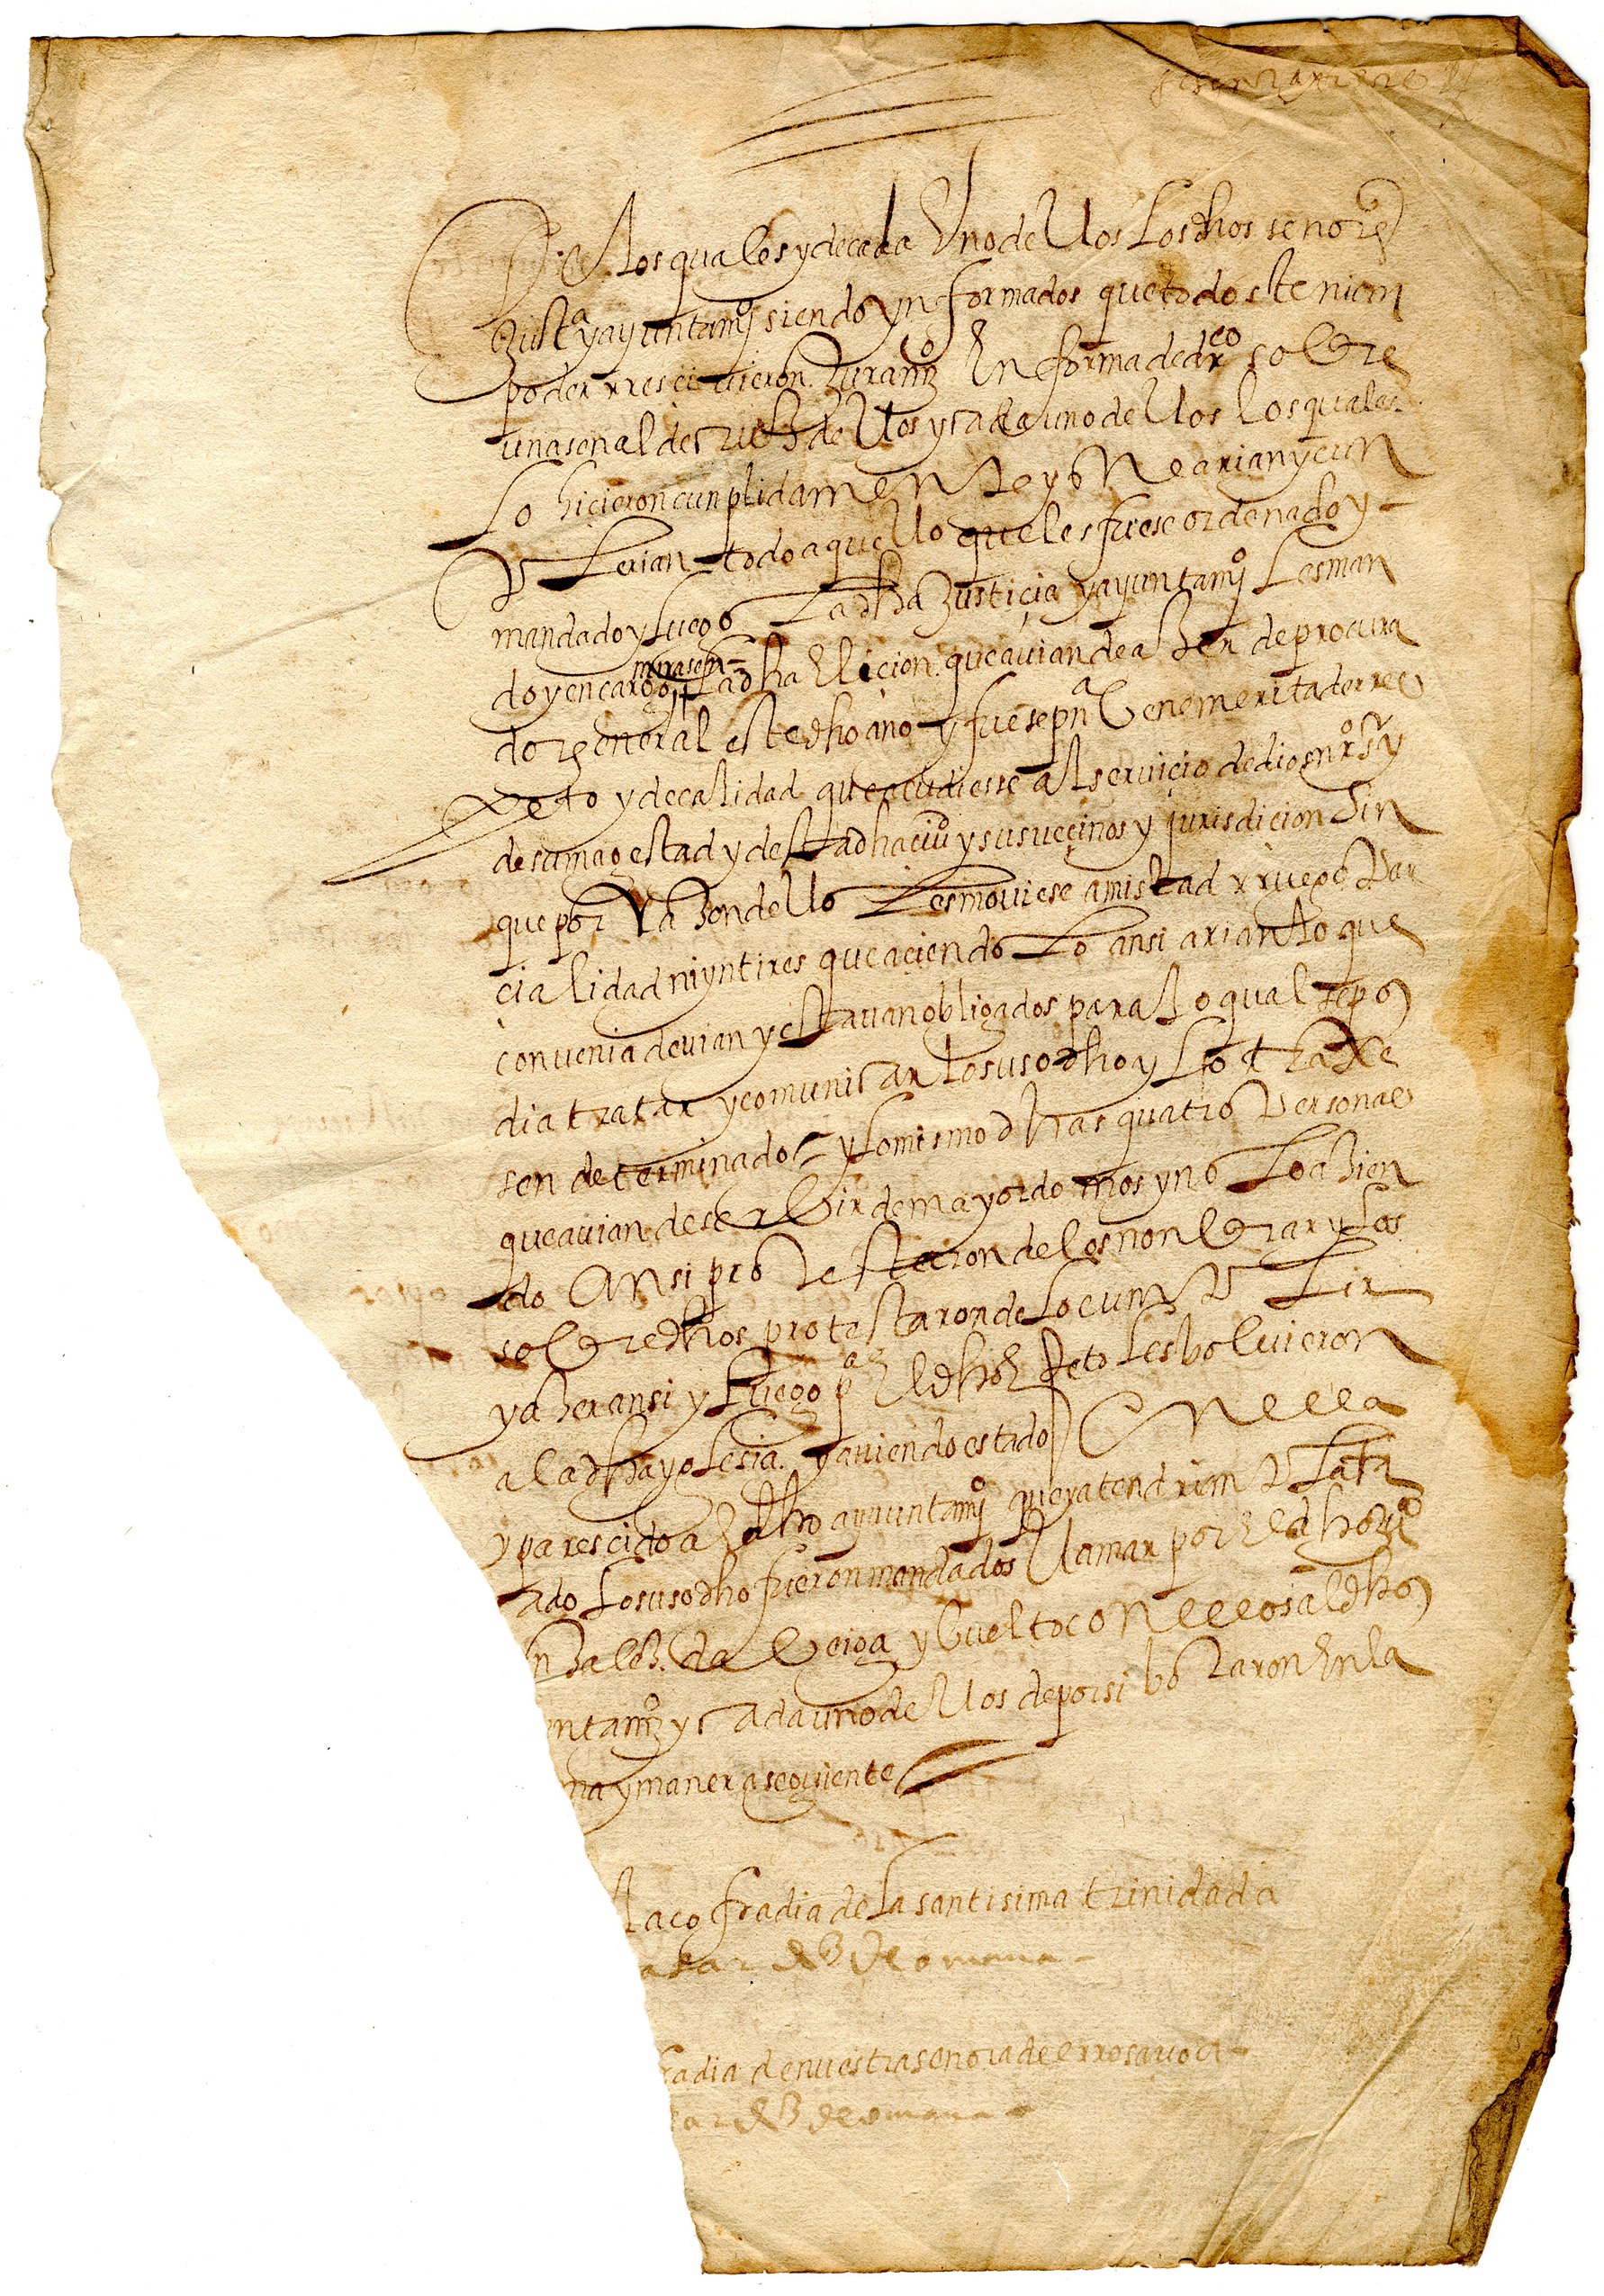 sesenta y tres
De los quales y de cada Uno de llos Los dhos señores
Justa y ayuntamo siendo ynformados que todos tenian
poder rrescivieron Juramo En forma de dreo sobre
una señal de cruz de llos y cada uno de llos los quales
Lo hicieron cunplidamente y o N e arian y cun
Plerian todo aquello que les fuese ordenado y
mandado y luego La dha Justicia y ayuntamo Les man
do y encargo mirasen La dha Elicion que avian de aZer de procura
dor general este dho año y fuese pna benemerita de rres
Peto y de calidad que acudiesse al servicio de dios nro sr y
de su magestad y desta dha ciud y sus vecinos y jurisdicion Sin
que por RaZon de llo Les moviese amistad rruego Par
cialidad ni yntires que aciendo Lo ansi arian lo que
convenia devian y estavan obligados para lo qual se po
dia tratar y comunicar lo susodho y Lo traxe
sen determinado y lo mismo dhas quatro Personas
que avian de serbir de mayordomos y no Lo aZien
do Ansi protesteron de los nonbrar y Los
sobre dhos protestaron de Lo cunPLir
y aZer ansi y Luego pa El dho Efeto Les bolvieron
a la dha yglesia y aviendo estado EN ella
y parescido al dho ayuntamo que ya tendrian PLati
ado Lo susodho fueron mandados llamar por El dho
nZalo da Veiga y buelto coN ellos al dho
entamo y cada uno de llos de por si botaron En la
ma y manera seguiente
la cofradia de la santisima trinidad a
asar de omana
radia de nuestra señora del rrosario a
ar de omana